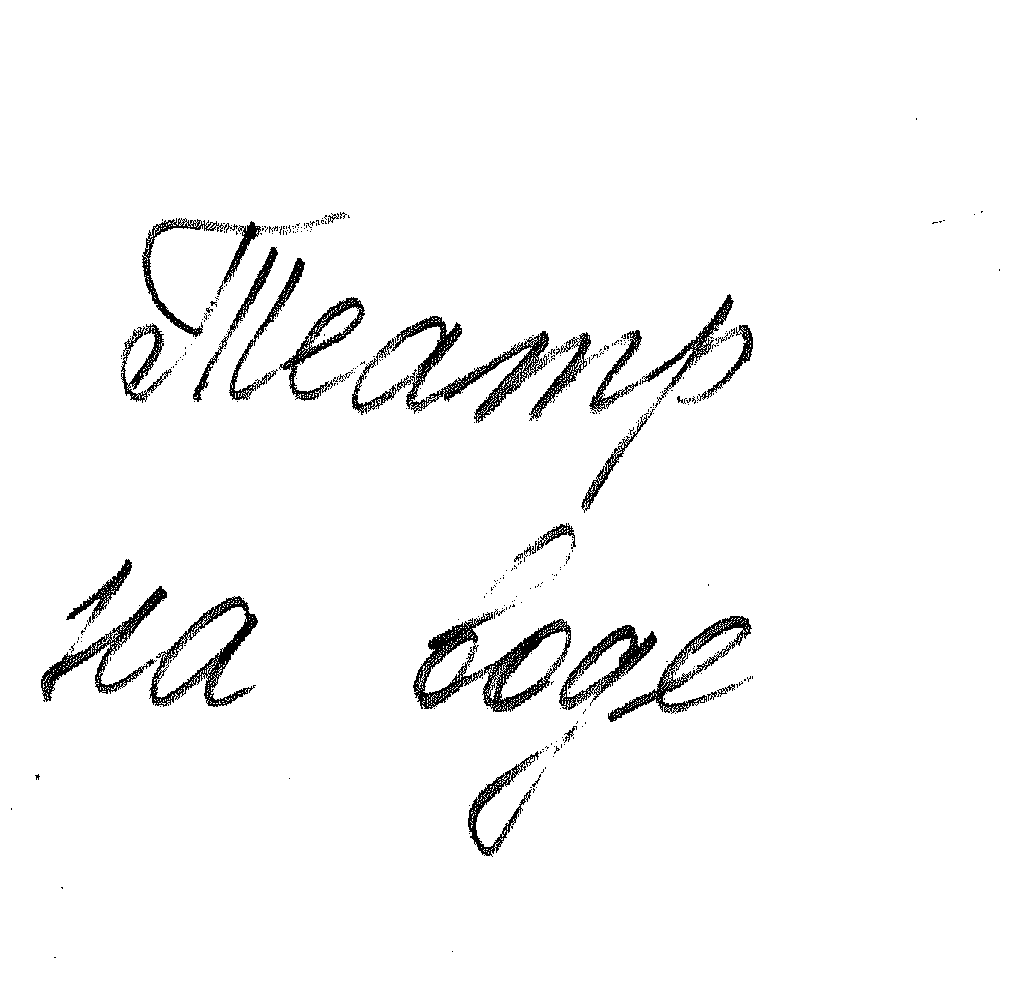 Театр
на воде